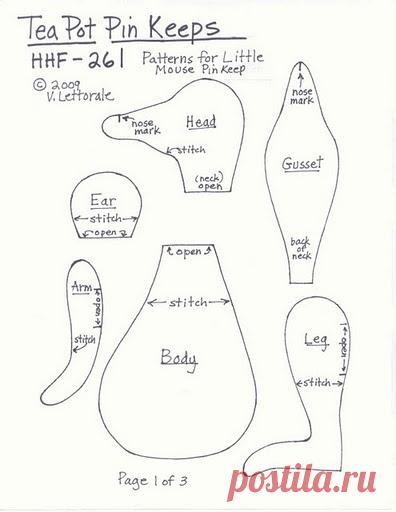 Tea Pot Pin Keeps
HHF-261
Patterns for Little
Mouse Pin Keep
© 2009
V. Lettorale
nose
mark
Head
stitch
(neck)
open
nose
mark
Gusset
back
of
neck
Ear
stitch
open
open
stitch
Body
Arm
open
stitch
Leg
open
stitch
Page 1 of 3
postila.ru